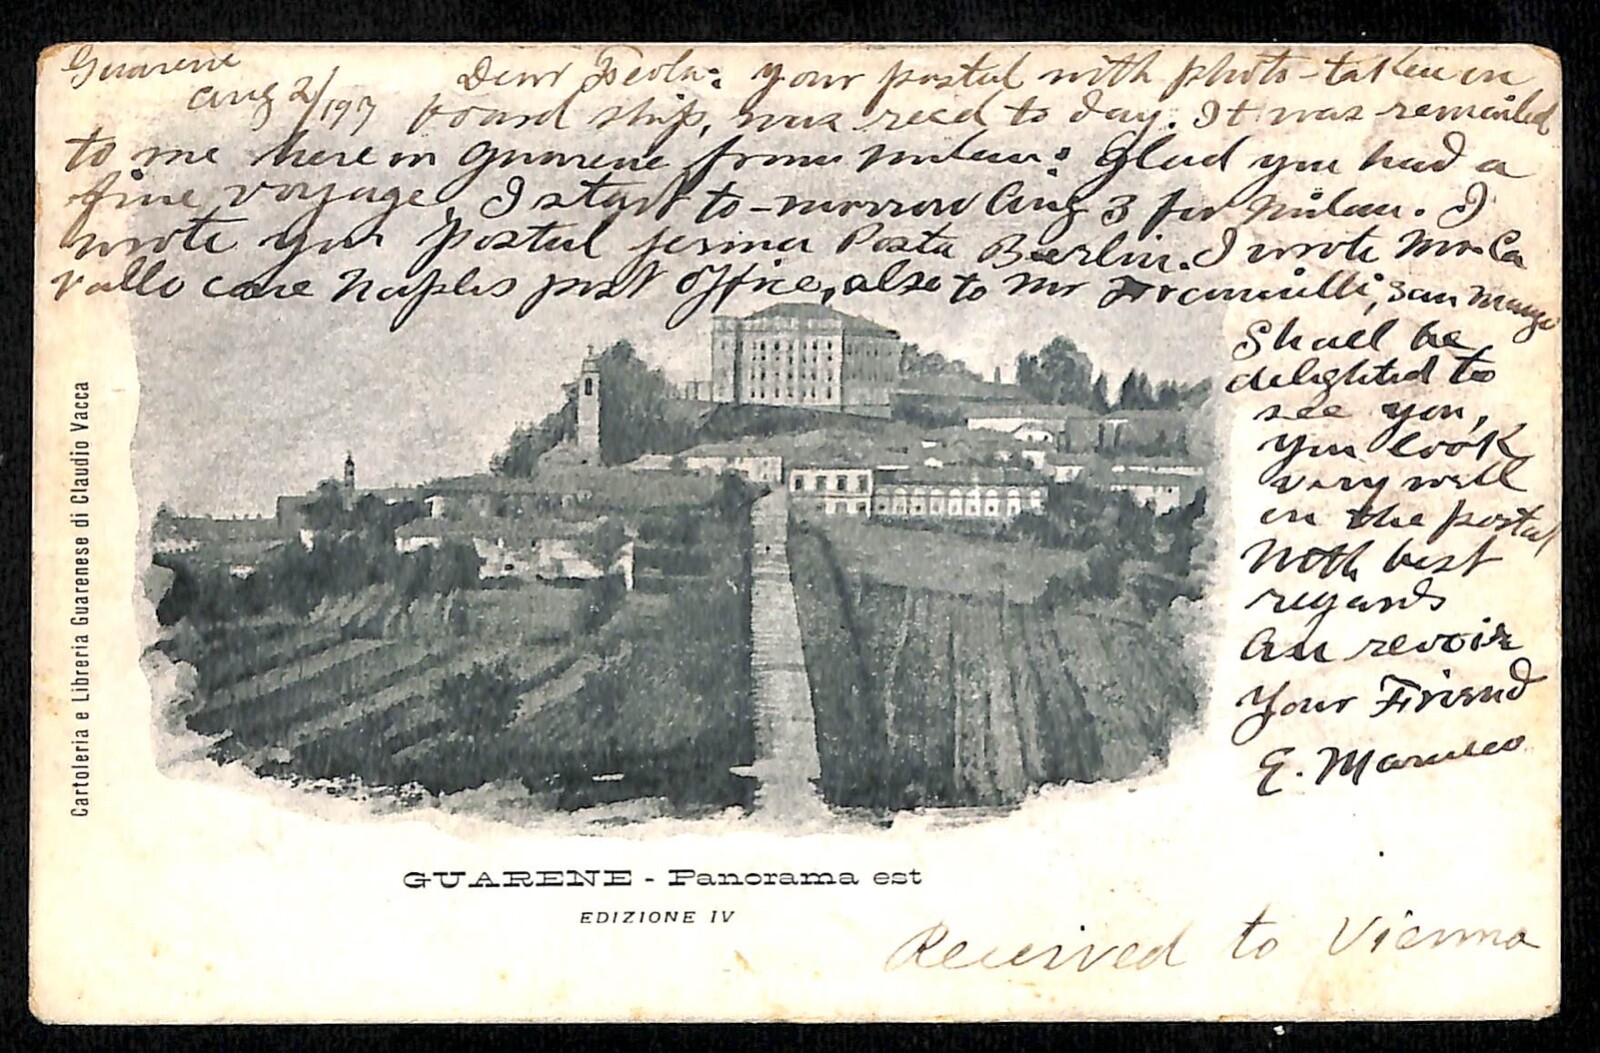 Guarene
Aug 2/197
Dear Feola: your postal with photo-taken on
board ship, was recd to day. It was remailed
to me here in Guarene from Milan. Glad you had a
fine voyage, I start to-morrow Aug 3 for Milan. I
wrote you postal ferma Posta Berlin. I wrote Mr Ca
vallo care Naples post office, also to Mr San Mango
Shall be
delighted to
see you,
you look
very well
in the postal
With best
regards
Au revoir
Your Friend
E. Marusco
Cartoleria e Libreria Guarenese di Claudio Vacca
GUARENE - Panorama est
EDIZIONE IV
Received to Vienna